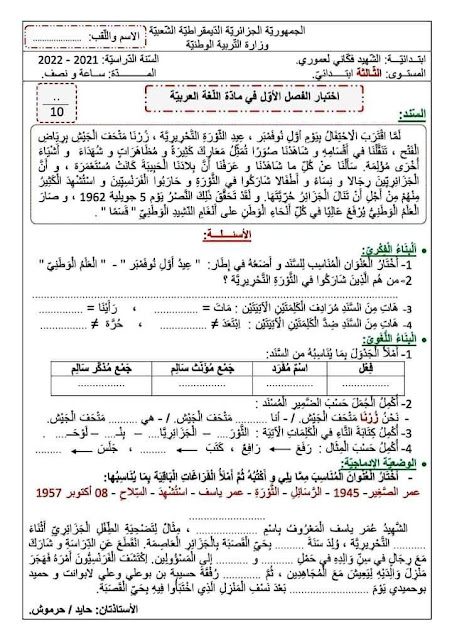 الجمهوريّة الجزائريّة الدّيمقراطيّة الشّعبيّة
وزارة التّربية الوطنيّة
الاسم واللّقب:
..............................
ابتدائيّة: الشّهيد فكّاني لعموري.
السّنة الدّراسيّة: 2021 - 2022
المستوى: الثّالثة ابتدائيّ.
المـــدّة: ساعة و نصف.
اختبار الفصل الأوّل في مادّة اللّغة العربيّة
..
10
السّند:
لَمَّا اقْتَرَبَ الِاحْتِفَالُ بِيَوْمِ أَوَّلِ نُوفَمْبَر ، عِيدِ الثَّوْرَةِ التَّحْرِيرِيَّةِ ، زُرْنَا مُتْحَفَ الْجَيْشِ بِرِيَاضِ
الْفَتْحِ ، تَنَقَّلْنَا فِي أَقْسَامِهِ وَ شَاهَدْنَا صُوَرًا تُمَثِّلُ مَعَارِكَ كَثِيرَةً وَ مُظَاهَرَاتٍ وَ شُهَدَاءَ وَ أَشْيَاءَ
أُخْرَى مُؤْلِمَة. سَأَلْنَا عَنْ كُلِّ مَا شَاهَدْنَا وَ عَرَفْنَا أَنَّ بِلَادَنَا الْحَبِيبَةَ كَانَتْ مُسْتَعْمَرَة ، وَ أَنَّ
الْجَزَائِرِيِّينَ رِجَالًا وَ نِسَاءً وَ أَطْفَالًا شَارَكُوا فِي الثَّوْرَةِ وَ حَارَبُوا الْفَرَنْسِيِّينَ وَ اسْتُشْهِدَ الْكَثِيرُ
مِنْهُمْ مِنْ أَجْلِ أَنْ تَنَالَ الْجَزَائِرُ حُرِّيَّتَهَا. وَ لَقَدْ تَحَقَّقَ ذَلِكَ النَّصْرُ يَوْمَ 5 جويلية 1962 ، وَ صَارَ
الْعَلَمُ الْوَطَنِيُّ يُرْفَعُ عَالِيًا فِي كُلِّ أَنْحَاءِ الْوَطَنِ عَلَى أَنْغَامِ النَّشِيدِ الْوَطَنِيِّ " قَسَمًا " .
الأسئـــلـــة:
• الْبِنَاءُ الْفِكْرِيّ:
1- أَخْتَارُ الْعُنْوَانَ الْمُنَاسِبَ لِلسَّنَدِ وَ أَضَعُهُ فِي إِطَار: " عِيدُ أَوَّلِ نُوفَمْبَر " - " الْعَلَمُ الْوَطَنِيّ "
2- مَنْ هُمُ الَّذِينَ شَارَكُوا فِي الثَّوْرَةِ التَّحْرِيرِيَّةِ ؟
3- هَاتِ مِنَ السَّنَدِ مُرَادِفَ الْكَلِمَتَيْنِ الْآتِيَتَيْنِ : مَاتَ = ............... ، رَأَيْنَا = ...............
4- هَاتِ مِنَ السَّنَدِ ضِدَّ الْكَلِمَتَيْنِ الْآتِيَتَيْنِ : ابْتَعَدَ ≠ ............... ، حُرَّة ≠ ...............
• الْبِنَاءُ اللُّغَوِيّ:
1- أَمْلَأُ الْجَدْوَلَ بِمَا يُنَاسِبُهُ مِنَ السَّنَد:
فِعْل
اسْم مُفْرَد
جَمْع مُؤَنَّث سَالِم
جَمْع مُذَكَّر سَالِم
2- أُكْمِلُ الْجُمَلَ حَسَبَ الضَّمِيرِ الْمُسْنَد :
- نَحْنُ زُرْنَا مُتْحَفَ الْجَيْشِ. / - أنا ............ مُتْحَفَ الْجَيْشِ. / - هي ............ مُتْحَفَ الْجَيْشِ.
3- أُكْمِلُ كِتَابَةَ التَّاءِ فِي الْكَلِمَاتِ الْآتِيَة : الثَّوْرَ.... – الْجَزَائِرِيَّا.... – بِنْـ.... – لَوْحَـ.... .
4- أُكْمِلُ حَسَبَ الْمِثَال : رَفَعَ ← رَافِعٌ ، كَتَبَ ← ............ ، جَلَسَ ← ............
• الوضعيّة الإدماجيّة:
- أَخْتَارُ الْعُنْوَانَ الْمُنَاسِبَ مِمَّا يَلِي وَ أَكْتُبُهُ ثُمَّ أَمْلَأُ الْفَرَاغَاتِ الْبَاقِيَةَ بِمَا يُنَاسِبُهَا:
عمر الصّغير- 1945 – الرَّسَائِلِ – الثَّوْرَةِ – عمر ياسف - اسْتُشْهِدَ - السِّلاح - 08 أكتوبر 1957
الشَّهِيدُ عُمَر ياسف الْمَعْرُوفُ بِاسْمِ ............... ، مِثَالٌ لِتَضْحِيَةِ الطِّفْلِ الْجَزَائِرِيِّ أَثْنَاءَ
............... التَّحْرِيرِيَّة ، وُلِدَ سَنَةَ ............... بِحَيِّ الْقَصَبَةِ بِالْجَزَائِرِ الْعَاصِمَة. انْقَطَعَ عَنِ الدِّرَاسَةِ وَ شَارَكَ
مَعَ رِجَالٍ فِي سِنِّ وَالِدِهِ فِي حَمْلِ ............... وَ ............... إِلَى الْمَسْؤُولِينَ. اِكْتَشَفَ الْفَرَنْسِيُّونَ أَمْرَهُ فَهَجَرَ
مَنْزِلَ وَالِدَيْهِ لِيَعِيشَ مَعَ الْمُجَاهِدِينَ ، ثُمَّ ............... رُفْقَةَ حسيبة بن بوعلي وعلي لابوانت و حميد
بوحميدي يَوْمَ ............... بَعْدَ نَسْفِ الْمَنْزِلِ الَّذِي اخْتَبَأُوا فِيهِ بِحَيِّ الْقَصَبَة.
الأستاذتان: حايد / حرموش.